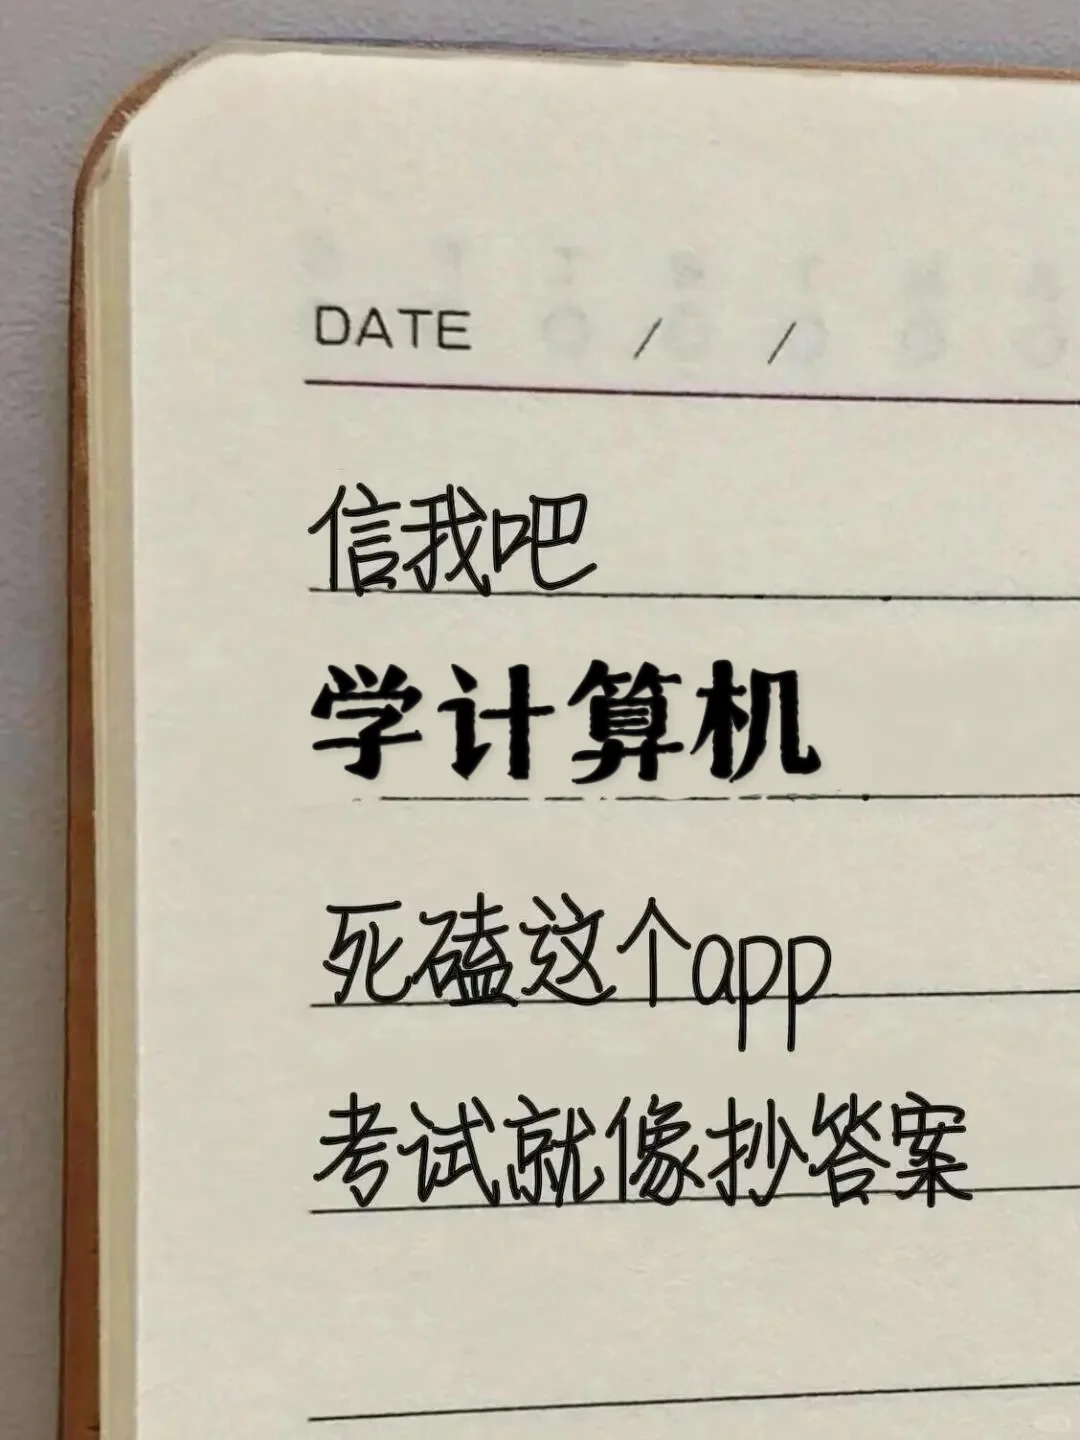 DATE / /
信我吧
学计算机
死磕这个app
考试就像抄答案